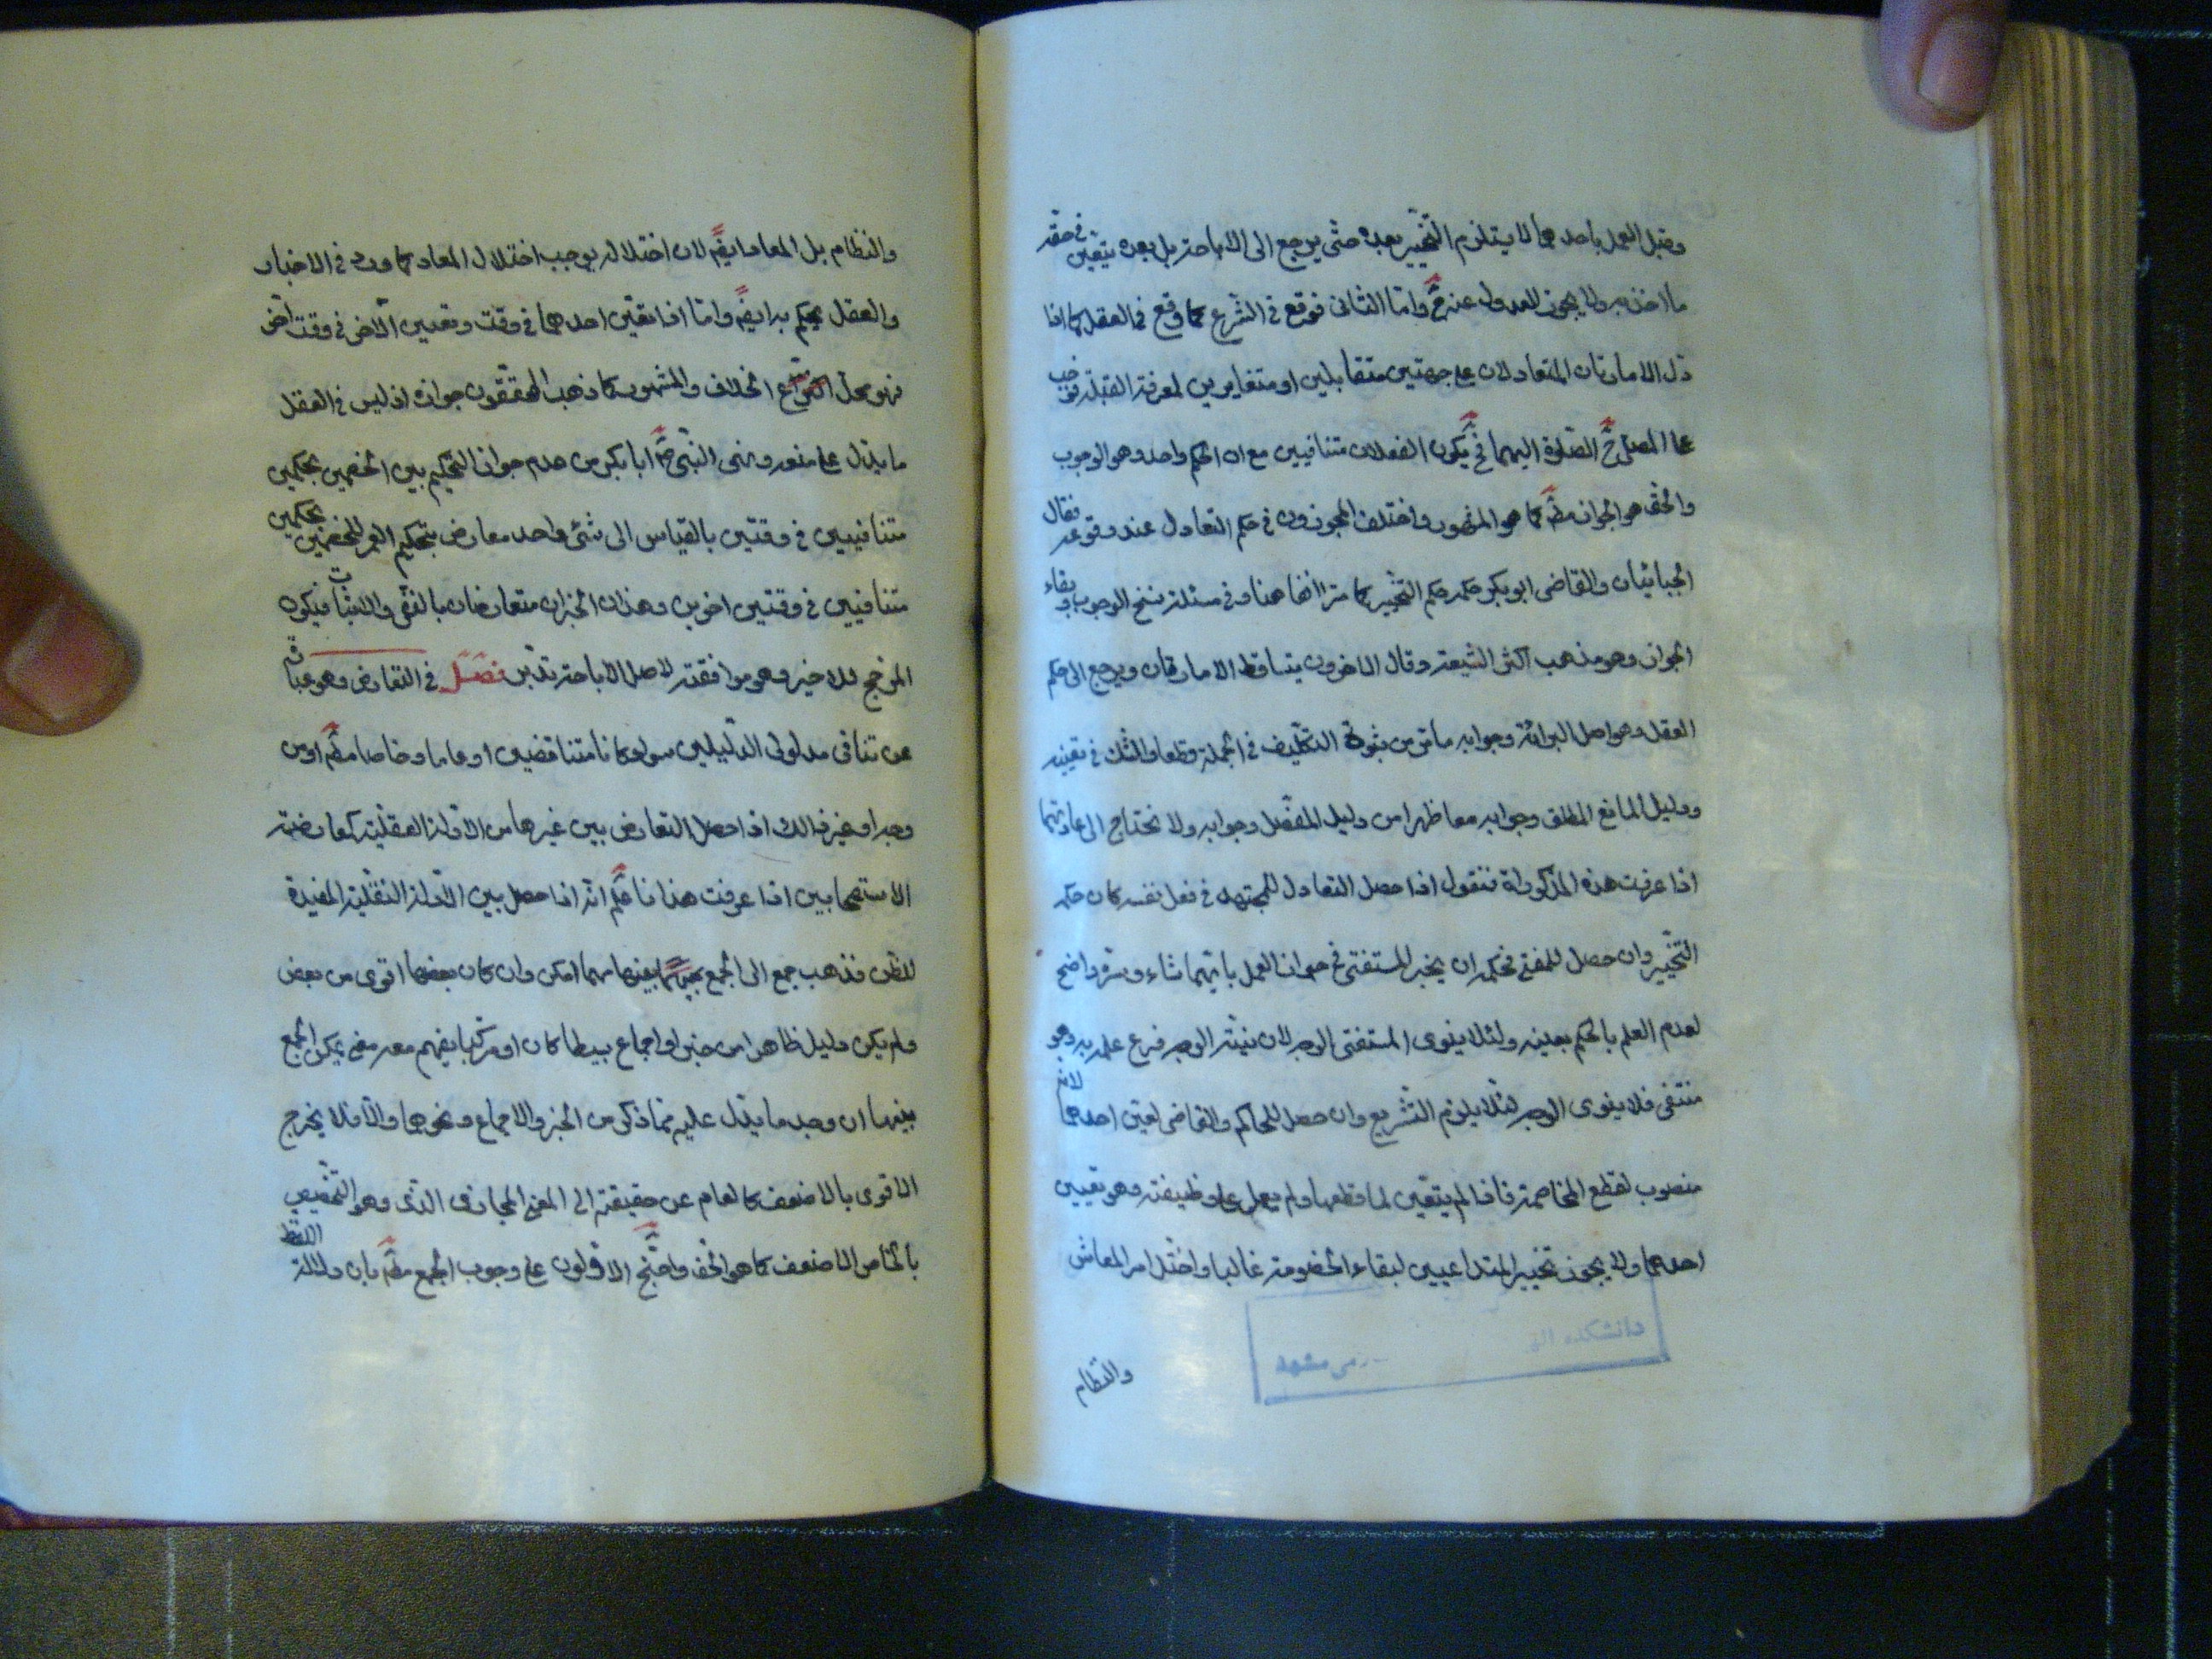 وقبل العمل باحدهما لا يستلزم التخيير بعده حتى يرجع الى الاباحة بل بعده يتعين فى حقه
ما اخذ به ولا يجوز العدول عنه ح واما الثانى فوقع فى الشرع كما وقع فى العقل كما اذا
دل الامارتان المتعادلان على جهتين متقابلين او متغايرين لمعرفة القبلة فوجب
على المصلى ح الصلوة اليهما فح يكون الفعلان متنافيين مع ان الحكم واحد وهو الوجوب
والحق هو الجواز مط كما هو المنصور واختلف المجوزون فى حكم التعادل عند وقوعه فقال
الجبائيان والقاضى ابو بكر حكمه حكم التخيير كما مر انفا هنا وفى مسئلة نسخ الوجوب وبقاء
الجواز وهو مذهب اكثر الشيعة وقال الاخرون يتساقط الامارتان ويرجع الى حكم
العقل وهو اصل البرائة وجوابه ما مر من ثبوت التكليف فى الجملة قطعا والشك فى تعيينه
ودليل المانع المطلق وجوابه معا ظهرا من دليل المفصل وجوابه ولا نحتاج الى اعادتهما
اذا عرفت هذه المذكورات فنقول اذا حصل التعادل للمجتهد فى فعل نفسه كان حكمه
التخيير وان حصل للمفتى فحكمه ان يخبر للمستفتى فى جواز العمل بايهما شاء وسره واضح
لعدم العلم بالحكم بعينه ولئلا ينوى المستفتى الوجه لان نية الوجه فرع علمه به وهو
منتفى فلا ينوى الوجه لئلا يلزم التشريع وان حصل للحاكم والقاضى لعين احدهما لانه
منصوب لقطع المخاصمة فاذا لم يتعين لما قطعها ولم يعمل على وظيفته وهو تعيين
احدهما ولا يجوز تخيير المتداعيين لبقاء الخصومة غالبا واختل امر المعاش
والنظام
دانشكده
مشهد
والنظام بل المعاد ايضم لان اختلاله يوجب اختلال المعاد كما ورد فى الاخبار
والعقل يحكم به ايضم واما اذا تعين احدهما فى وقت وتعيين الاخر فى وقت اخر
فهو محل الخلاف والمشهور كما ذهب المحققون جوازه اذ ليس فى العقل
ما يدل على منعه ونهى النبى ص ابا بكر من عدم جواز التحكيم بين الخصمين بحكمين
متنافيين فى وقتين بالقياس الى شئ واحد معارض بتحكيم العمر للخصمين بحكمين
متنافيين فى وقتين اخرين وهذان الخبران متعارضان بالنفى والاثبات فيكون
المرجح للاخير وهو موافقته لاصل الاباحة تدبر فصل فى التعارض وهو عبارة
عن تنافى مدلولى الدليلين سواء كانا متناقضين او عاما وخاصا مط او من
وجه او غير ذالك اذا حصل التعارض بين غيرها من الادلة العقلية كمعارضة
الاستصحابين اذا عرفت هذا فاعلم انه اذا حصل بين الادلة النقلية المفيدة
للظن فذهب جمع الى الجمع بينهما مهما امكن وان كان بعضها اقوى من بعض
ولم يكن دليل ظاهرا من خبر او اجماع بسيطا كان او مركبا يفهم معه معنى يمكن الجمع
بينهما ان وجد ما يدل عليه مما ذكر من الخبر والاجماع ونحوها والا فلا يخرج
الاقوى بالاضعف كالعام عن حقيقته الى المعنى المجازى الذى وهو التخصيص
بالخاص الاضعف كما هو الحق واحتج الاولون على وجوب الجمع مط بان دلالة اللفظ